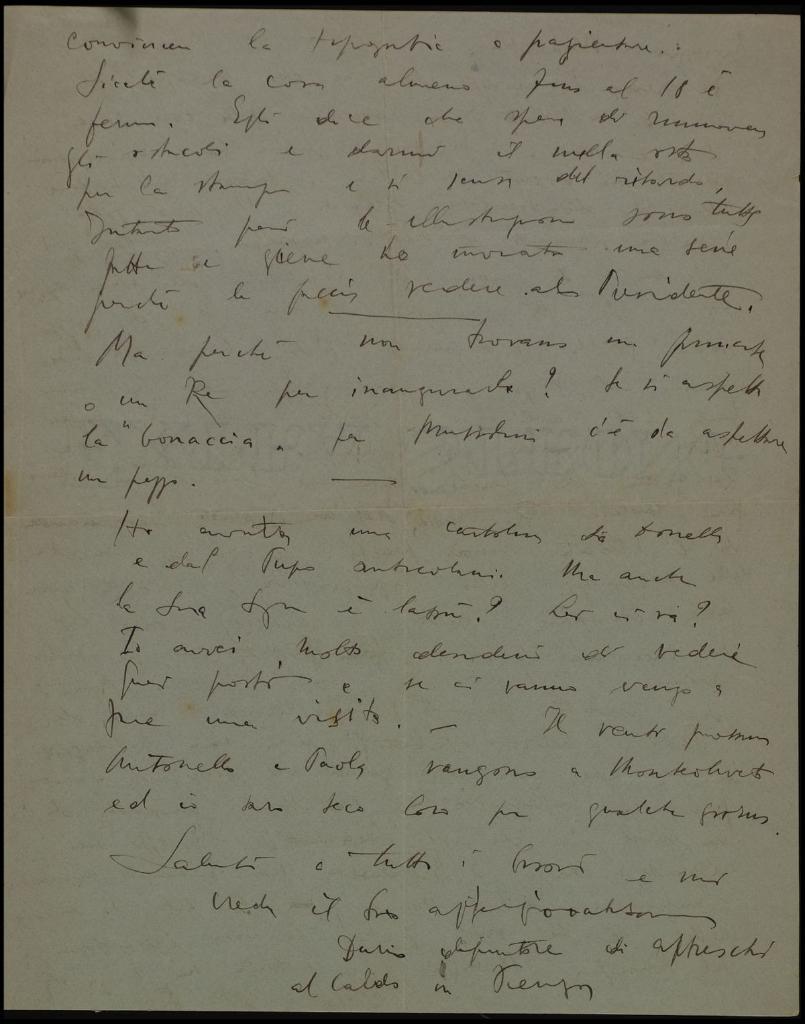 convincere la tipografia a pazientare.:
Sicché la cosa almeno fino al 18 è
ferma. Egli dice che spera di rimuovere
gli ostacoli e darmi il nulla osta
per la stampa e si scusa del ritardo,
Intanto però le illustrazioni sono tutte
fatte e gliene ho inviata una serie
perché le faccia vedere al Presidente.
Ma perché non trovano un
o un Re per inaugurarla? Se si aspetta
la "bonaccia" per Mussolini c'è da aspettare
un pezzo.
Ho avuto una cartolina da Antonello
e dal Papa anticolani. Ma anche
la Sua Sigra è lassù? Lei ci va?
Io avrei molto desiderio di vedere
quei posti e se ci vanno vengo a
fare una visita. — Il venti prossimo
Antonello e Paola vengono a Monteoliveto
ed io sarò seco loro per qualche giorno.
Saluti a tutti i buoni e mi
creda il suo affezionatissimo
Dario dipintore di affreschi
al caldo in Firenze